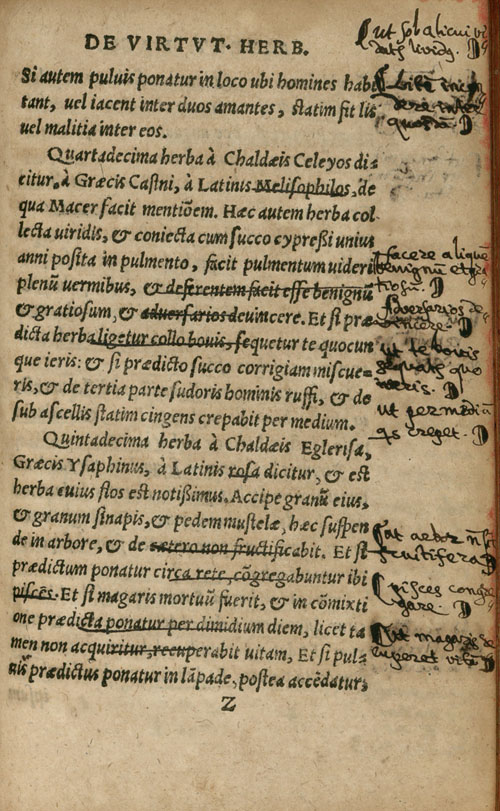 DE VIRTVT. HERB.
Si autem puluis ponatur in loco ubi homines habi
tant, uel iacent inter duos amantes, statim fit lis
uel malitia inter eos.
Quartadecima herba à Chaldæis Celeyos di=
citur, à Græcis Castni, à Latinis Melisophilos, de
qua Macer facit mentiõem. Hæc autem herba col
lecta uiridis, & coniecta cum succo cypreßi unius
anni posita in pulmento, facit pulmentum uideri
plenũ uermibus, & deferentem facit esse benignũ
& gratiosum, & aduersarios deuincere. Et si præ
dicta herba ligetur collo bouis, sequetur te quocun
que ieris: & si prædicto succo corrigiam miscue=
ris, & de tertia parte sudoris hominis ruffi, & de
sub ascellis statim cingens crepabit per medium.
Quintadecima herba à Chaldæis Eglerisa,
Græcis Ysaphinus, à Latinis rosa dicitur, & est
herba cuius flos est notißimus. Accipe granũ eius,
& granum sinapis, & pedem mustelæ, hæc suspen
de in arbore, & de cætero non fructificabit. Et si
prædictum ponatur circa rete, cõgregabuntur ibi
pisces. Et si magaris mortuũ fuerit, & in cõmixti
one prædicta ponatur per dimidium diem, licet ta
men non acquiritur, recuperabit uitam, Et si pul=
uis prædictus ponatur in lãpade, postea accẽdatur,
Z
facere aliquẽ
benignũ et gra
Aduersarios de
ut te bouis
sequatur quo
ieris.
ut per mediũ
crepet.
fructifera
pisces congre
gare.
Vt magaris re
cuperet uitã